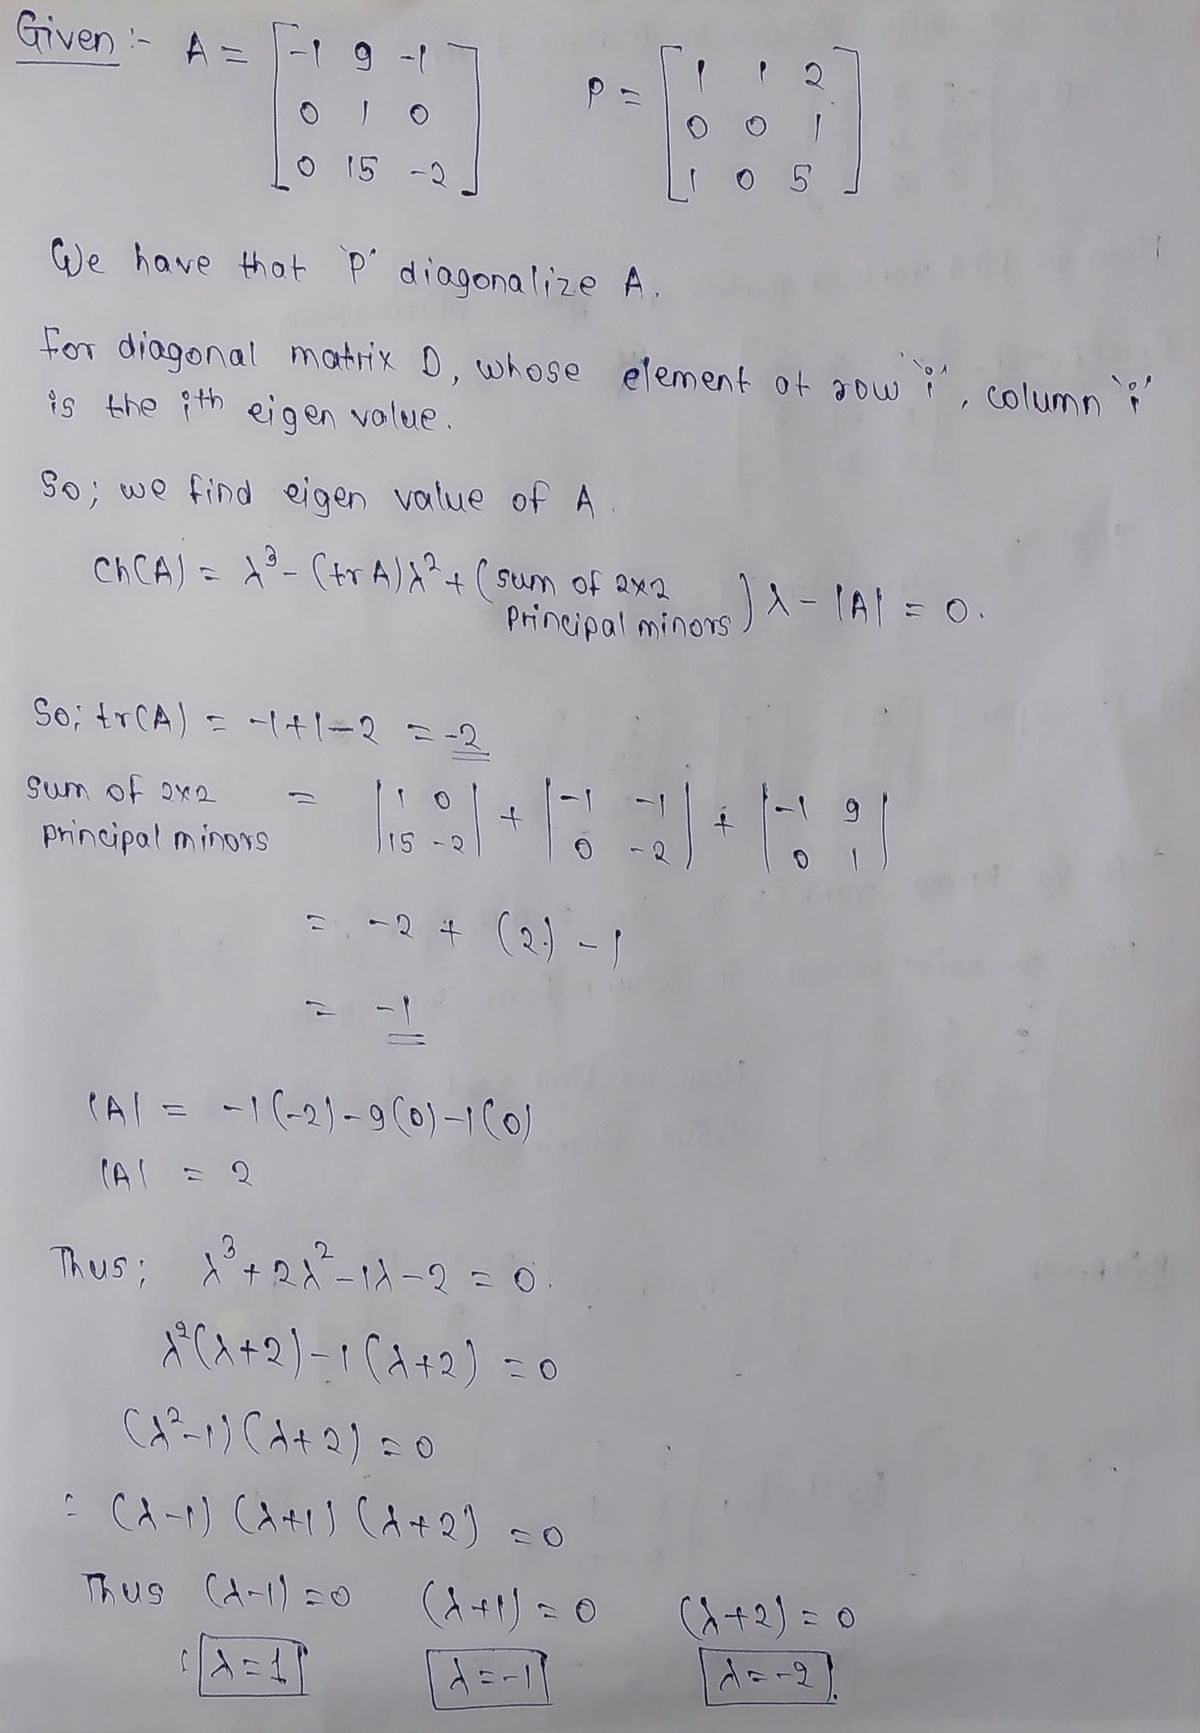 Given :- A = [-1 9 -1
0 1 0
0 15 -2]
P = [1 1 2
0 0 1
1 0 5]
We have that 'P' diagonalize A.
For diagonal matrix D, whose element at row "i", column "i"
is the ith eigen value.
So; we find eigen value of A.
Ch(A) = λ³ - (tr A)λ² + (sum of 2x2
principal minors) λ - |A| = 0.
So; tr(A) = -1+1-2 = -2
sum of 2x2
principal minors = |1 0
15 -2| + |-1 -1
0 -2| + |-1 9
0 1|
= -2 + (2) - 1
= -1
|A| = -1(-2) - 9(0) - 1(0)
|A| = 2
Thus; λ³ + 2λ² - 1λ - 2 = 0.
λ²(λ+2) - 1(λ+2) = 0
(λ²-1) (λ+2) = 0
= (λ-1) (λ+1) (λ+2) = 0
Thus (λ-1) = 0 (λ+1) = 0 (λ+2) = 0
: λ=1 λ=-1 λ=-2.